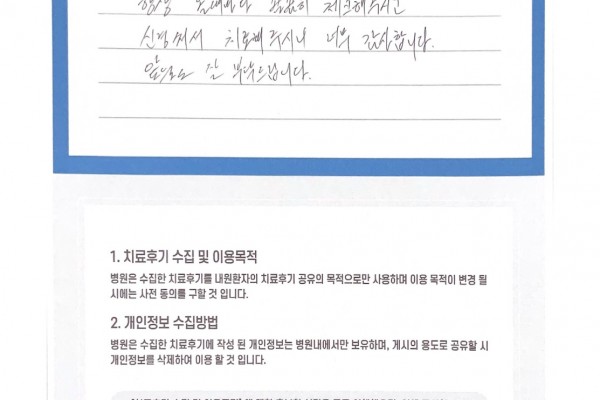 항상 올때마다 꼼꼼히 체크해주시고
신경써서 치료해주시니 너무 감사합니다.
앞으로도 잘 부탁드립니다.
1. 치료후기 수집 및 이용목적
병원은 수집한 치료후기를 내원환자의 치료후기 공유의 목적으로만 사용하며 이용 목적이 변경 될
시에는 사전 동의를 구할 것 입니다.
2. 개인정보 수집방법
병원은 수집한 치료후기에 작성 된 개인정보는 병원내에서만 보유하며, 게시의 용도로 공유할 시
개인정보를 삭제하여 이용 할 것 입니다.